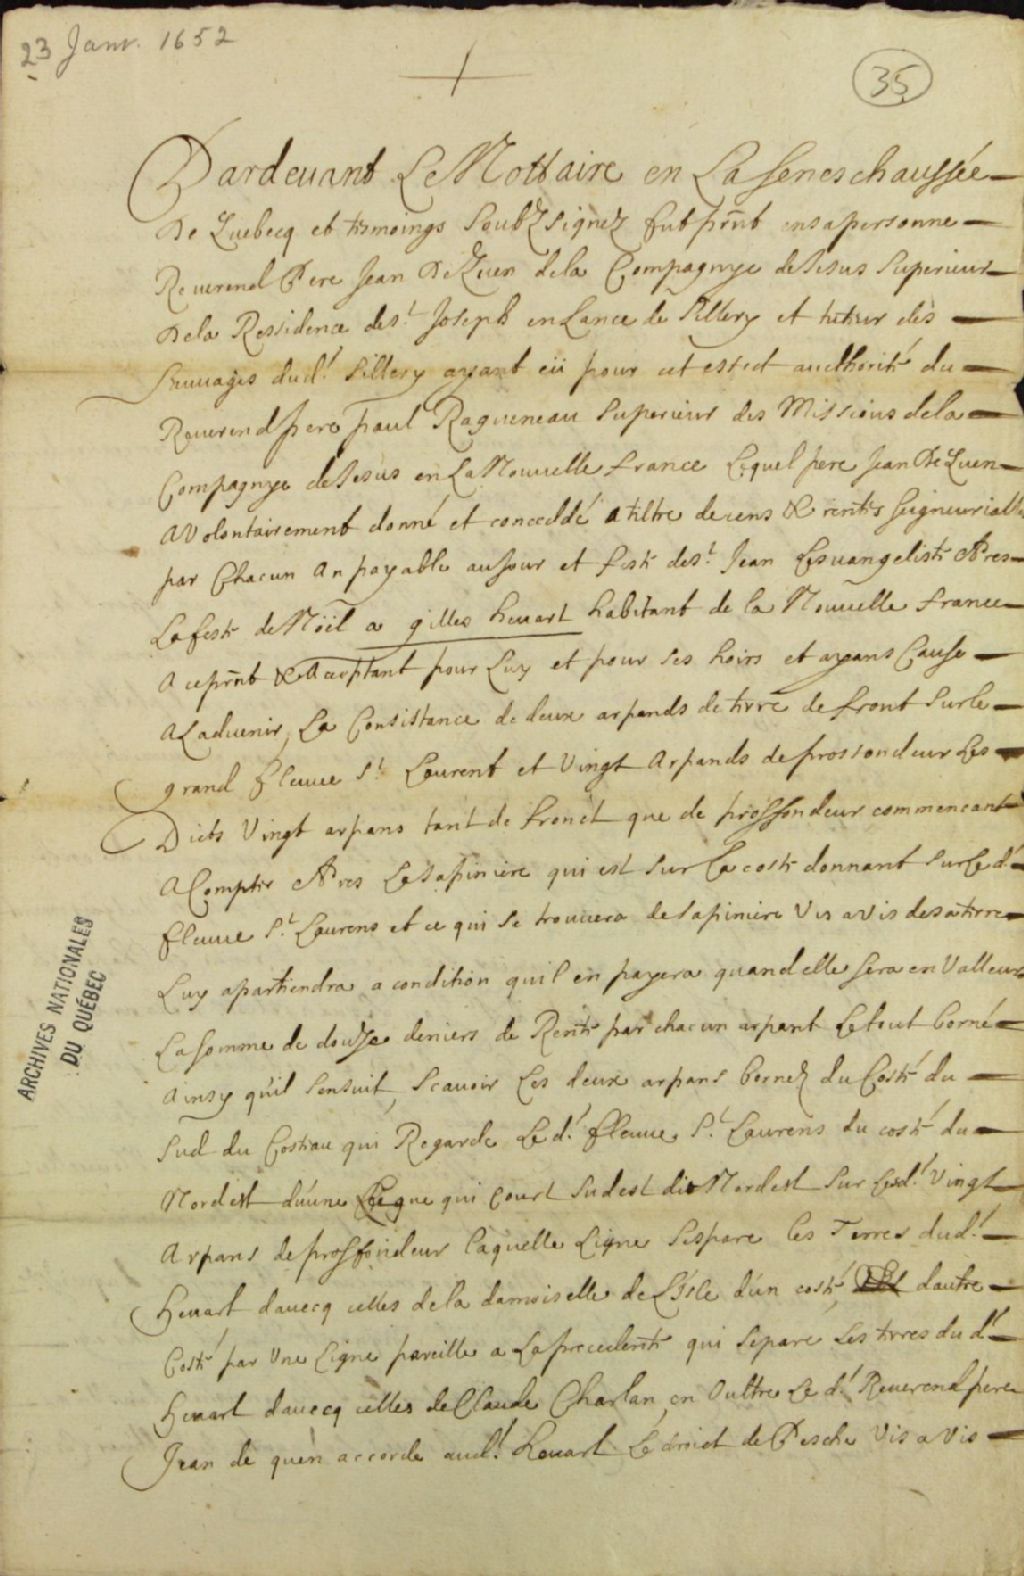 23 Janv. 1652
35
Pardevant Le Nottaire en La Seneschaussée
De Quebecq et tesmoings Soubzsignez fut prnt en sa personne
Reverend Pere Jean DeQuen de la Compagnye de Jesus Superieur
De la Ressidence de st Joseph en Lance de Sillery et tuteur des
Sauvages dudt Sillery ayant eü pour cet effect aucthorité du
Reverend pere paul Ragueneau Superieur des Missions de la
Compagnye de Jesus en La Nouvelle france Lequel pere Jean DeQuen
a volontairement donné et conceddé a tiltre de cens & rentes seigneurialle
par Chacun an payable au Jour et feste de st Jean Lesvangeliste Apres
La feste de Nöel a gilles henart habitant de la Nouvelle france
a ce prnt & acceptant pour Luy et pour ses hoirs et ayans Cause
a Ladvenir, La Consistance de deux arpends de terre de front Sur le
grand fleuve St Laurent et Vingt Arpands de proffondeur Les
Dicts Vingt arpans tant de fronct que de proffondeur commencant
a Compter Apres La Sapiniere qui est sur La coste donnant sur Led.
fleuve St Laurens et ce qui se trouvera de sapiniere Vis a Vis de sa terre
Luy apartiendra a condition quil en payera quand elle sera en Valleur
La somme de douze deniers de Rente par chacun arpant Le tout borné
ainsy qu'il sensuit, scavoir Les deux arpans bornez du Costé du
Sud du Costeau qui Regarde Led.t fleuve St Laurens du costé du
Nordest dune Ligne qui court Sudest Nordest Sur Lesd.t Vingt
Arpans de proffondeur laquelle Ligne Separe les Terres dud.t
henart davecq celles de la damoiselle de L'Isle d'un costé, dautre
Costé par Une Ligne pareille a La precedente qui Separe Les terres dudt
henart davecq celles de Claude Charlan, en Oultre Led.t Reverend pere
Jean de quen accorde aud.t henart Le droict de Pesche Vis a Vis
ARCHIVES NATIONALES
DU QUÉBEC